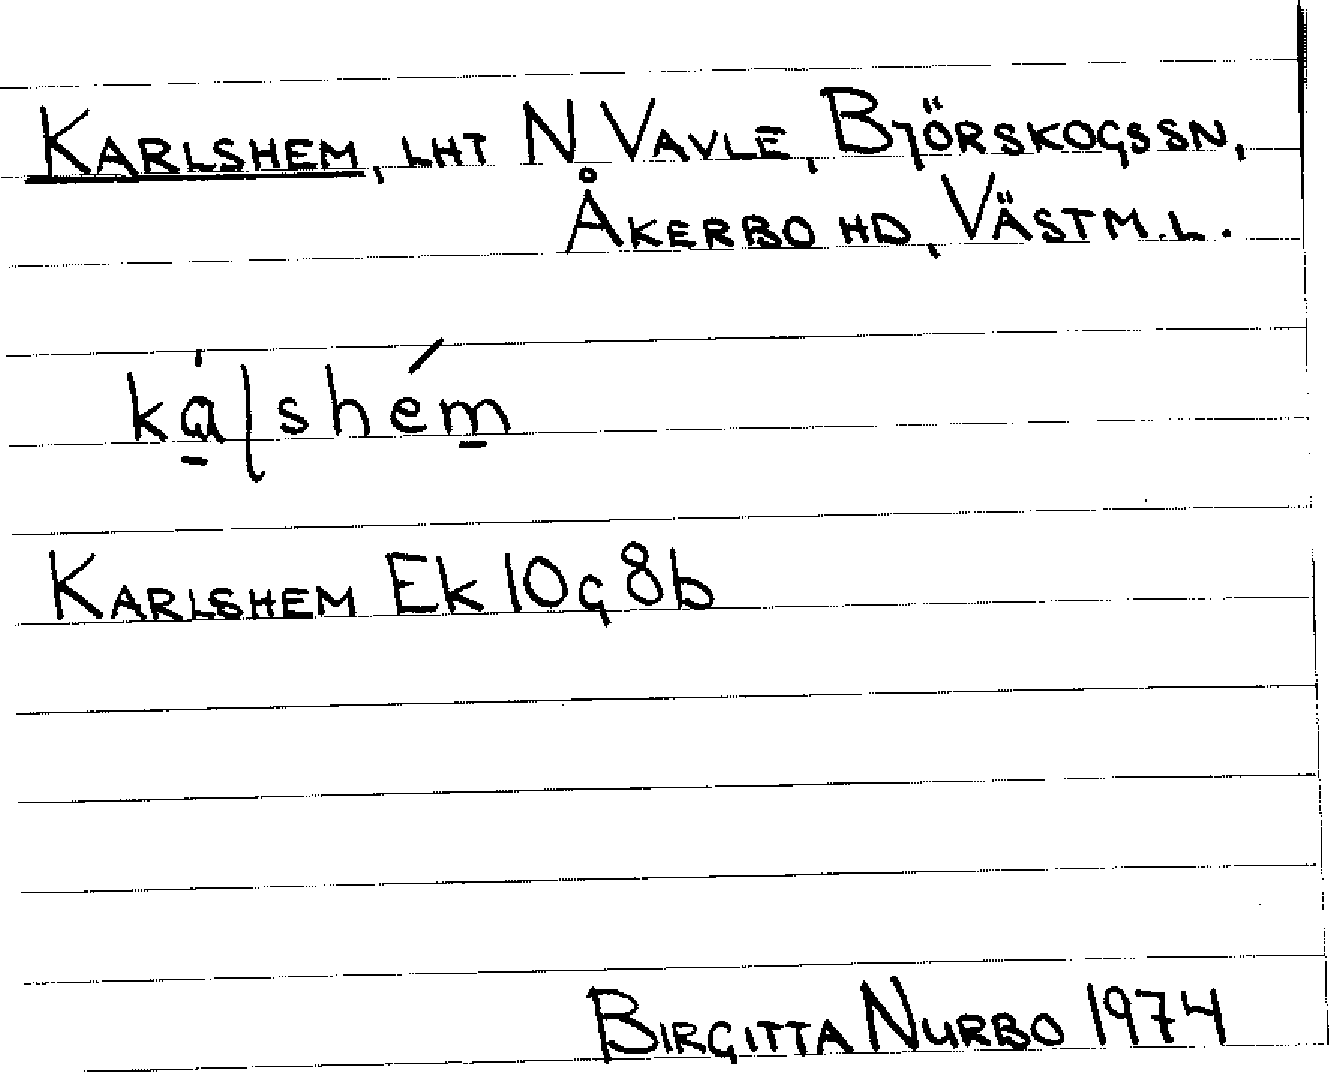 KARLSHEM, LHT N VAVLE, BJÖRSKOGSSN,
ÅKERBO HD, VÄSTM.L.
kálshém
KARLSHEM Ek 10g8b
BIRGITTA NURBO 1974